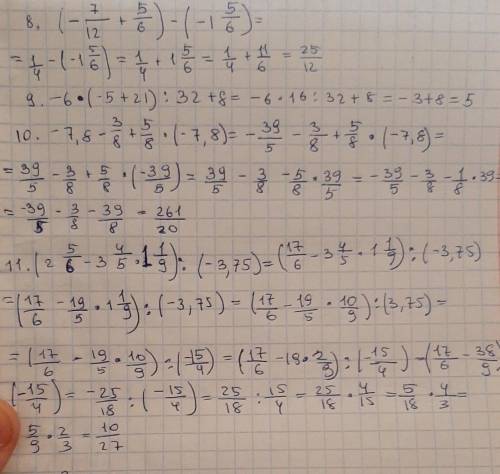 8. (-7/12 + 5/6) - (-1 5/6) =
= 1/4 - (-1 5/6) = 1/4 + 1 5/6 = 1/4 + 11/6 = 25/12
9. -6 • (-5+21) : 32+8 = -6 • 16 : 32 + 8 = -3+8 = 5
10. -7,8 - 3/8 + 5/8 • (-7,8) = -39/5 - 3/8 + 5/8 • (-7,8) =
= 39/5 - 3/8 + 5/8 • (-39/5) = 39/5 - 3/8 - 5/8 • 39/5 = -39/5 - 3/8 - 1/8 • 39 -
= -39/5 - 3/8 - 39/8 = 261/20
11. (2 5/6 - 3 4/5 • 1 1/9) : (-3,75) = (17/6 - 3 4/5 • 1 1/9) : (-3,75)
= (17/6 - 19/5 • 1 1/9) : (-3,75) = (17/6 - 19/5 • 10/9) : (3,75) =
= (17/6 - 19/5 • 10/9) : (15/4) = (17/6 - 18 • 2/9) : (-15/4) - (17/6 - 38/9
(-15/4) = -25/18 : (-15/4) = 25/18 : 15/4 = 25/18 • 4/15 = 5/18 • 4/3 =
5/9 • 2/3 = 10/27